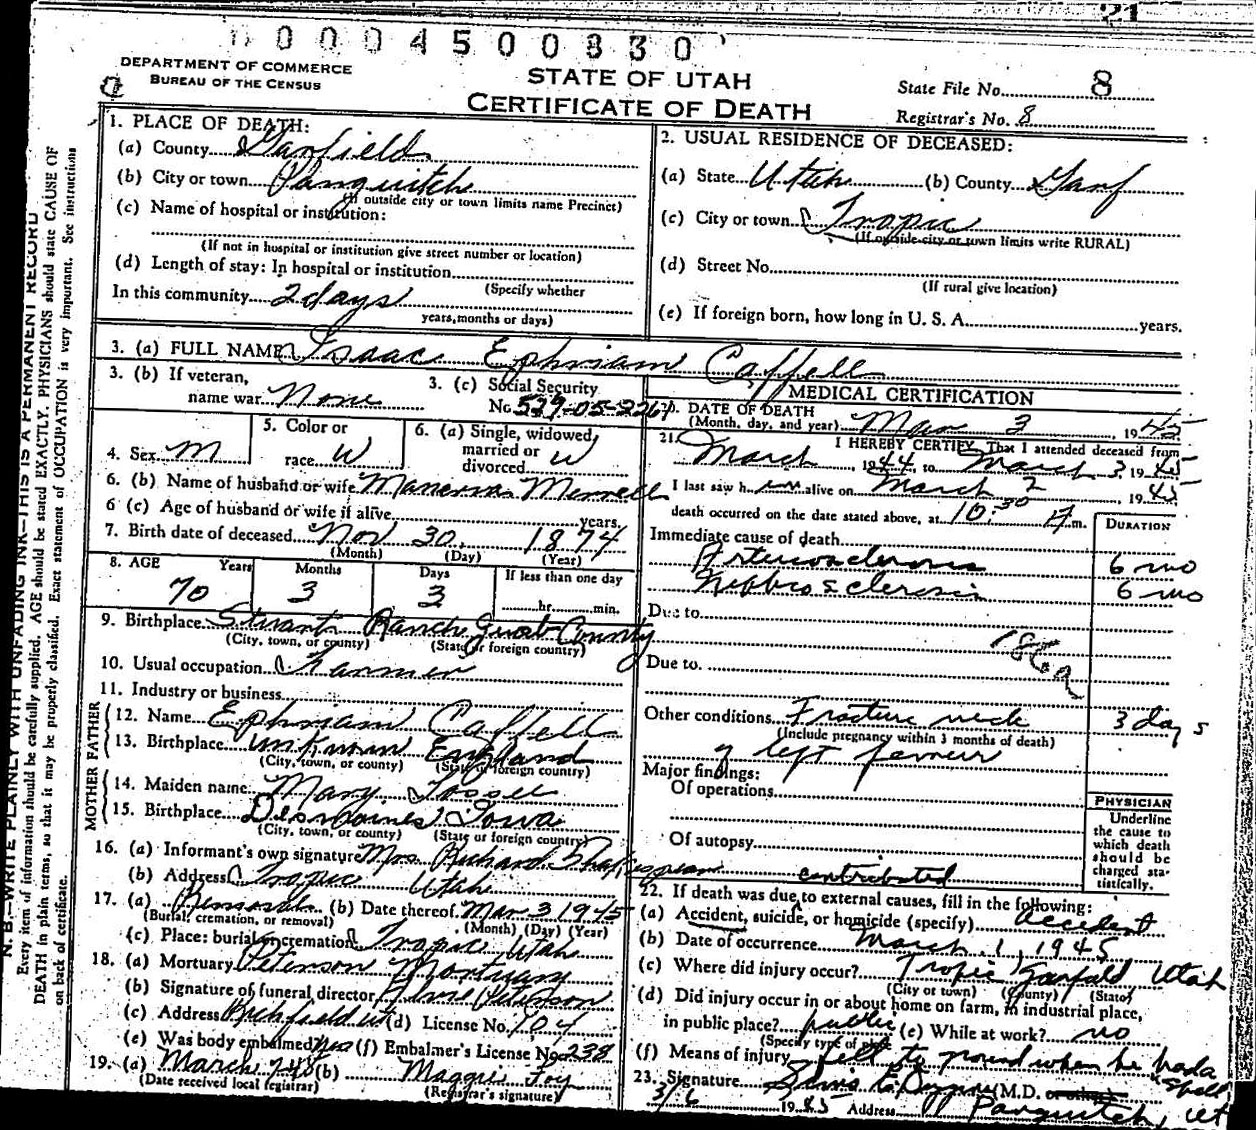 21
0004500830
DEPARTMENT OF COMMERCE
BUREAU OF THE CENSUS
STATE OF UTAH
CERTIFICATE OF DEATH
State File No. 8
Registrar's No. 8
N. B.—WRITE PLAINLY WITH UNFADING INK—THIS IS A PERMANENT RECORD
Every item of information should be carefully supplied. AGE should be stated EXACTLY. PHYSICIANS should state CAUSE OF
DEATH in plain terms, so that it may be properly classified. Exact statement of OCCUPATION is very important. See instructions
on back of certificate.
1. PLACE OF DEATH:
(a) County Garfield
(b) City or town Panguitch
(If outside city or town limits name Precinct)
(c) Name of hospital or institution:
(If not in hospital or institution give street number or location)
(d) Length of stay: In hospital or institution
(Specify whether
In this community 2 days
years, months or days)
2. USUAL RESIDENCE OF DECEASED:
(a) State Utah (b) County Garf
(c) City or town Tropic
(If outside city or town limits write RURAL)
(d) Street No.
(If rural give location)
(e) If foreign born, how long in U. S. A. years.
3. (a) FULL NAME Isaac Ephriam Caffell
3. (b) If veteran,
name war None
3. (c) Social Security
No. 529-05-2267
4. Sex M
5. Color or
race W
6. (a) Single, widowed,
married or
divorced W
6. (b) Name of husband or wife Manerva Merrell
6 (c) Age of husband or wife if alive years.
7. Birth date of deceased Nov 30, 1874
(Month) (Day) (Year)
8. AGE Years Months Days If less than one day
70 3 3 hr. min.
9. Birthplace Ranch County
(City, town, or county) (State or foreign country)
10. Usual occupation Farmer
11. Industry or business
FATHER
12. Name Ephriam Caffell
13. Birthplace unknown England
(City, town, or county) (State or foreign country)
MOTHER
14. Maiden name Mary
15. Birthplace Desmoines Iowa
(City, town, or county) (State or foreign country)
16. (a) Informant's own signature Mrs. Richard Shakespear
(b) Address Tropic Utah
17. (a) Removal (b) Date thereof Mar 3 1945
(Burial, cremation, or removal) (Month) (Day) (Year)
(c) Place: burial or cremation Tropic Utah
18. (a) Mortuary Peterson Mortuary
(b) Signature of funeral director Peterson
(c) Address Richfield Ut (d) License No. 104
(e) Was body embalmed? yes (f) Embalmer's License No. 238
19. (a) March (b) Maggie Foy
(Date received local registrar) (Registrar's signature)
MEDICAL CERTIFICATION
20. DATE OF DEATH
(Month, day, and year) Mar 3, 1945
21. I HEREBY CERTIFY, That I attended deceased from
March, 1944, to March 3, 1945
I last saw him alive on March 2 1945
death occurred on the date stated above, at 10:30 A m.
DURATION
Immediate cause of death
Arteriosclerosis 6 mo
Nephrosclerosis 6 mo
Due to
186a
Due to
Other conditions Fracture neck 3 days
(Include pregnancy within 3 months of death)
of left femur
Major findings:
Of operations
Of autopsy
PHYSICIAN
Underline
the cause to
which death
should be
charged sta-
tistically.
contributed
22. If death was due to external causes, fill in the following:
(a) Accident, suicide, or homicide (specify) accident
(b) Date of occurrence March 1, 1945
(c) Where did injury occur? Tropic Garfield Utah
(City or town) (County) (State)
(d) Did injury occur in or about home on farm, in industrial place,
in public place? public (e) While at work? no
(Specify type of place)
(f) Means of injury fell to ground when he had a
spell
23. Signature (M.D. or other)
3/6 1945 Address Panguitch, Ut